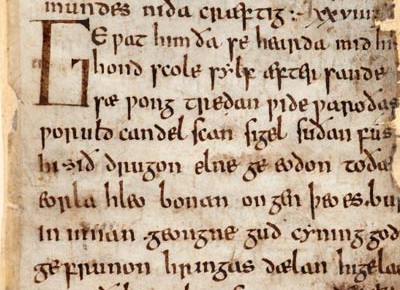 mundes niða cræftig :· xxviii
GEƿat him ða se hearda mid hi
hond scole sylf æfter sande
sæ ƿong tredan ƿide ƿaroðas
ƿoruld candel scan sigel suðan fus
hi sið drugon elne ge eodon to ðæ
eorla hleo bonan on gen þeoes. bu
in innan geongne guð cyning god
ge frunon hringas dælan higela